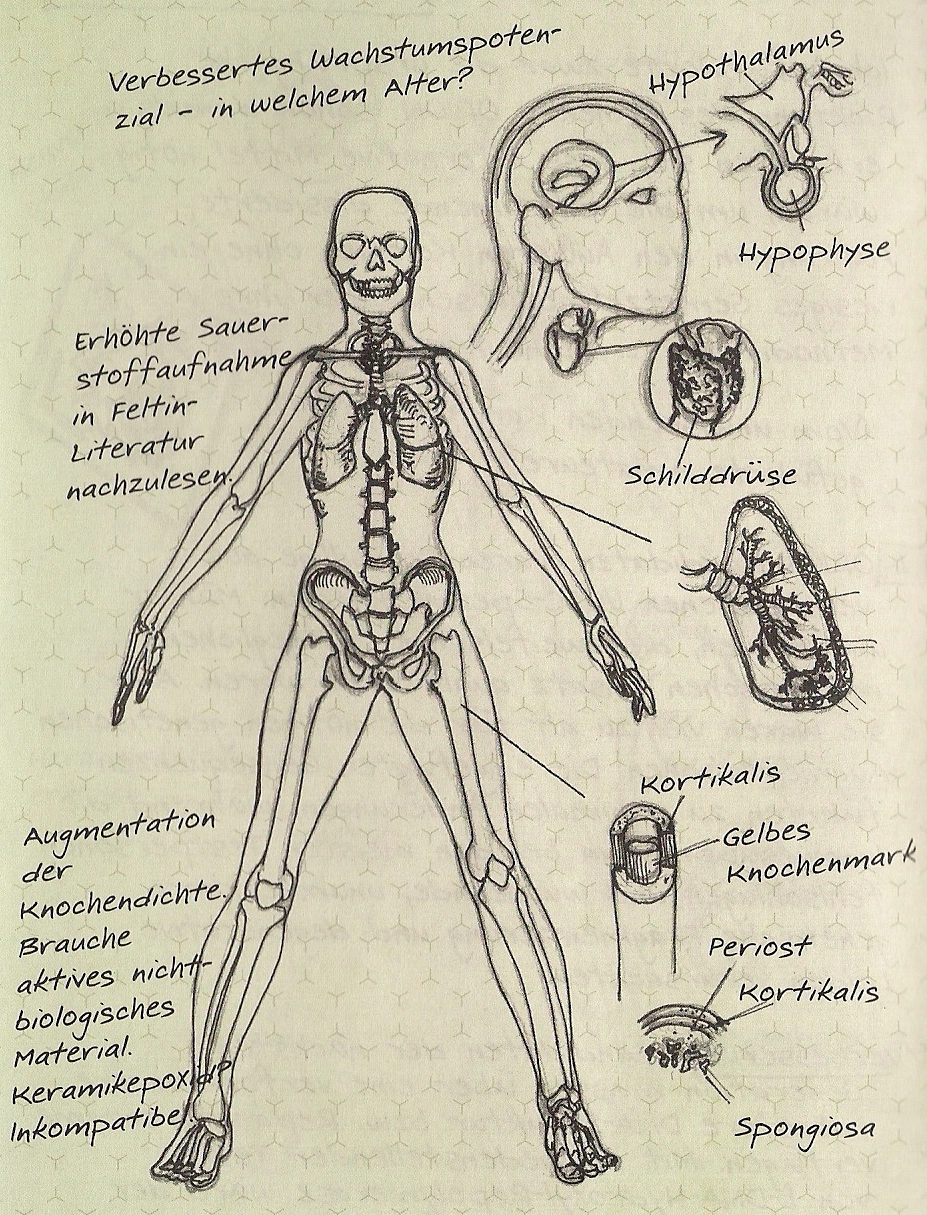 Verbessertes Wachstumspoten-
zial - in welchem Alter?
Hypothalamus
Hypophyse
Erhöhte Sauer-
stoffaufnahme
in Feltin-
Literatur
nachzulesen.
Schilddrüse
Kortikalis
Gelbes
Knochenmark
Augmentation
der
Knochendichte.
Brauche
aktives nicht-
biologisches
Material.
Keramikepoxid?
Inkompatibel.
Periost
Kortikalis
Spongiosa